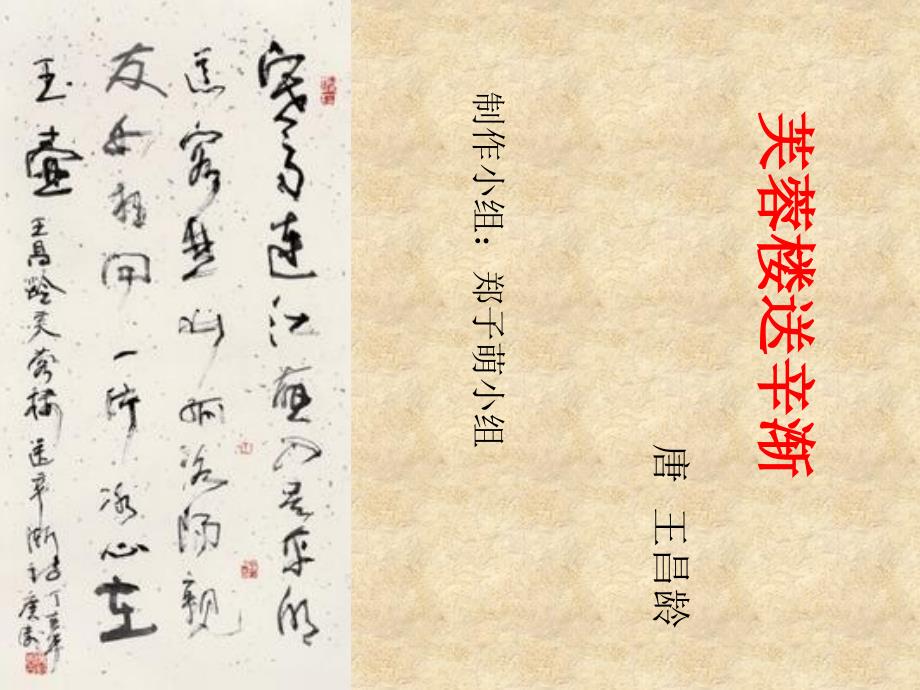 芙蓉楼送辛渐
唐 王昌龄
制作小组：郑子萌小组
寒雨連江夜入吳平明
送客楚山孤洛陽親
友如相問一片冰心在
玉壺 王昌齡芙蓉樓送辛漸詩 丁亥年